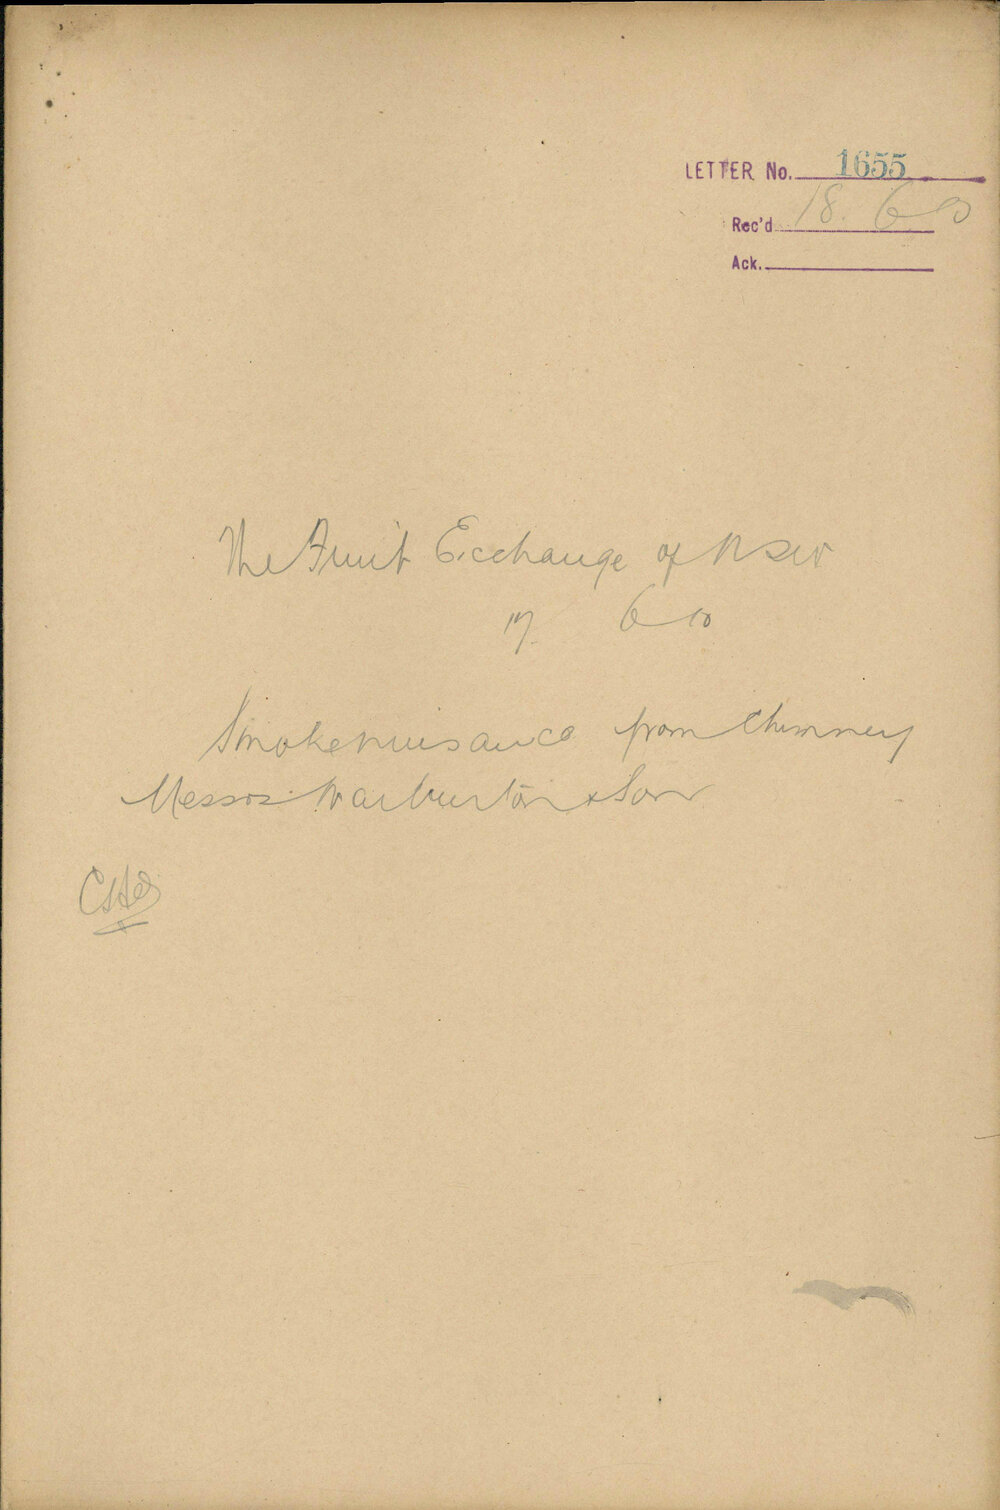 LETTER No. 1655
Rec'd 18. 6 10
Ack.
The Fruit Exchange of NSW
17 6 10
Smoke nuisance from Chimney
Messrs Warburton & Son